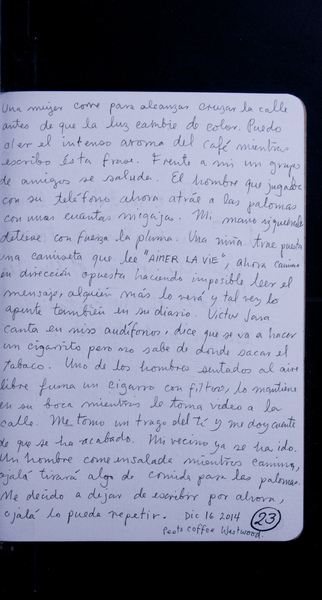 Una mujer corre para alcanzar cruzar la calle
antes de que la luz cambie de color. Puedo
oler el intenso aroma del café mientras
escribo ésta frase. Frente a mi un grupo
de amigos se saluda. El hombre que jugaba
con su teléfono ahora atráe a las palomas
con unas cuantas migajas. Mi mano izquierda
detiene con fuerza la pluma. Una niña trae puesta
una camiseta que lee "AIMER LA VIE", ahora camina
en dirección opuesta haciendo imposible leer el
mensaje, alguien más lo verá y tal vez lo
apunte también en su diario. Victor Jara
canta en mis audífonos, dice que se va a hacer
un cigarrito pero no sabe de donde sacar el
tabaco. Uno de los hombres sentados al aire
libre fuma un cigarro con filtro, lo mantiene
en su boca mientras le toma video a la
calle. Me tomo un trago del té y me doy cuenta
de que se ha acabado. Mi vecino ya se ha ido.
Un hombre come ensalada mientras camina,
ojalá tirará algo de comida para las palomas.
Me decido a dejar de escribir por ahora,
ojalá lo pueda repetir. Dic 16 2014 23
Peets Coffee Westwood.